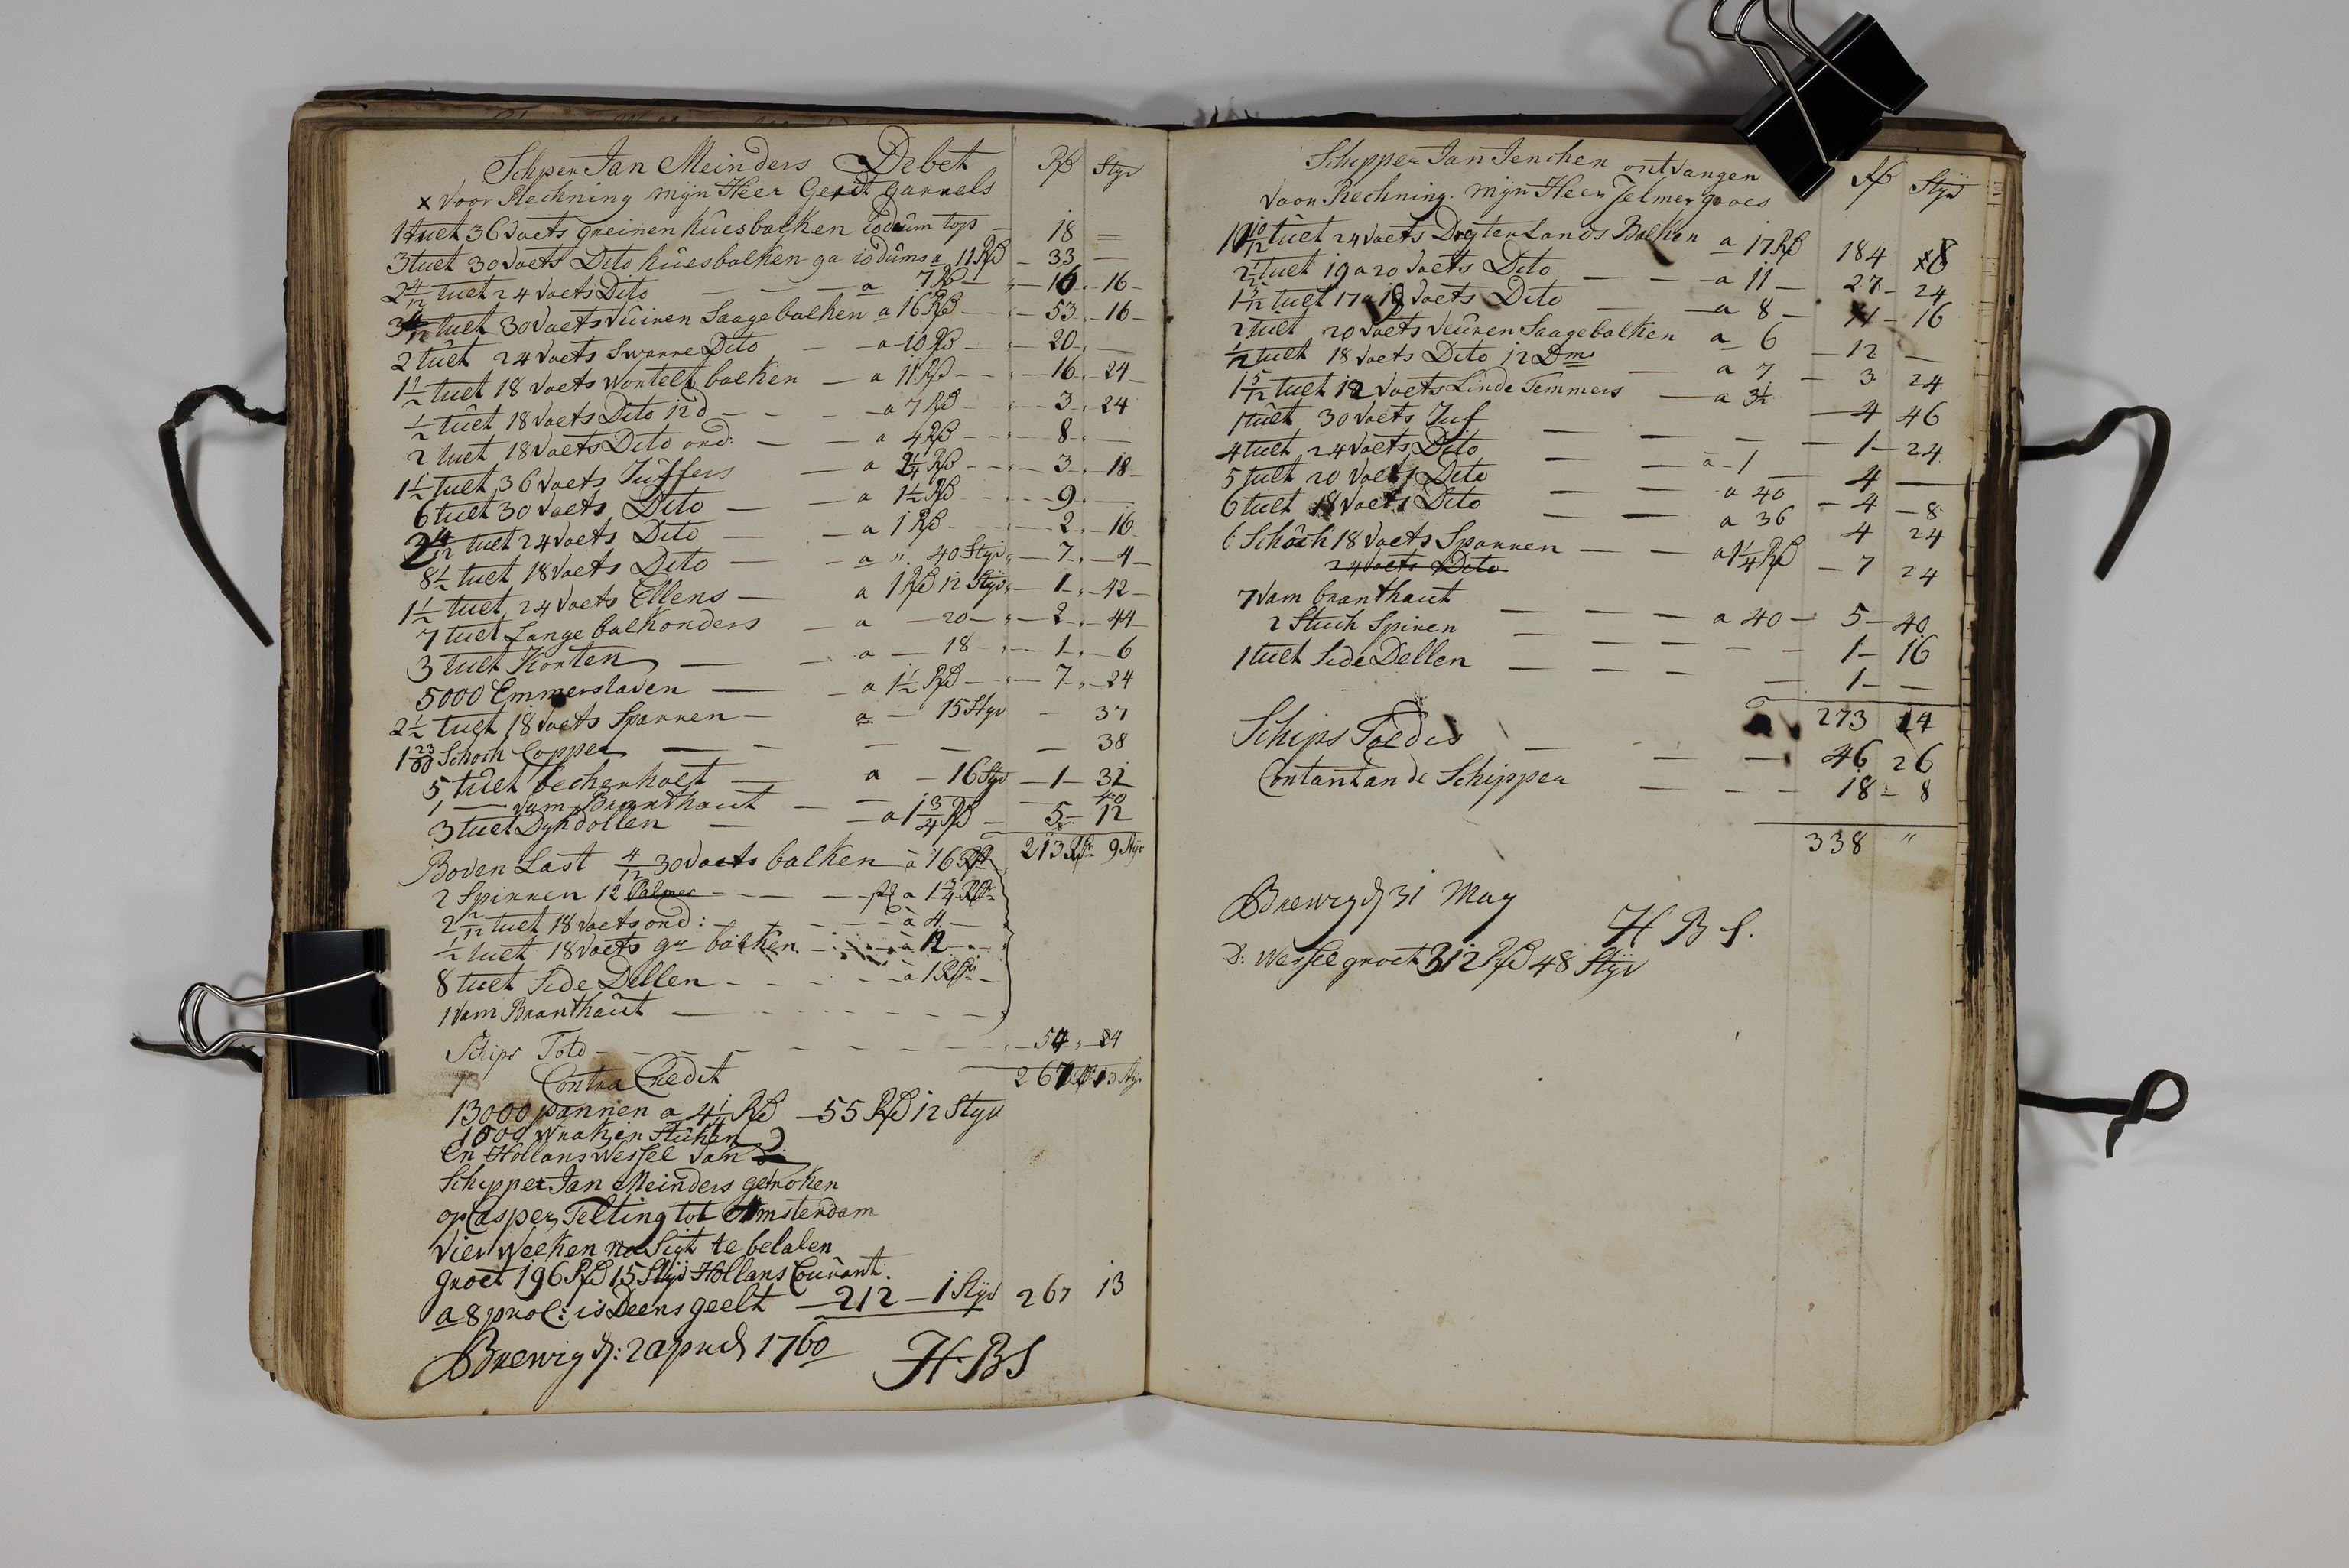 Schper Jan Meinders Debet Rß Styv
x Voor Rechning mijn Heer Gerit garrels
1 tuet 36 Voets greinen kûesbalken 10 dûm top — 18 =
3 tuet 30 Voets Dito kûesbalken ga 10 dûms a 11 Rß — 33 —
2 4/12 tuet 24 Voets Dito — — — a 7 Rß — 16 . 16 —
3 4/12 tuet 30 Voets Vûiren Saagebalken a 16 Rß — 53 . 16 —
2 tuet 24 Voets Swarre Dito — a 10 Rß — 20 . —
1 1/2 tuet 18 Voets Wortelt balken — a 11 Rß — 16 . 24 —
1/2 tuet 18 Voets Dito 12 d — — — a 7 Rß — 3 . 24
2 tuet 18 Voets Dito ond: — — a 4 Rß — 8 . —
1 1/2 tuet 36 Voets Juffers — a 2 1/4 Rß — 3 . 18 —
6 tuet 30 Voets Dito — — a 1 1/2 Rß — 9 . —
2 4/12 tuet 24 Voets Dito — — a 1 Rß — 2 . 16
8 1/2 tuet 18 Voets Dito — — a " 40 Styv — 7 . 4 —
1 1/2 tuet 24 Voets Ellens — a 1 Rß 12 Styv — 1 . 42 —
7 tuet Lange balkonders — a — 20 — 2 . 44 —
3 tuet Korten — — a — 18 — 1 . 6
5000 Emmerstaven — — a 1 1/2 Rß — 7 . 24
2 1/2 tuet 18 Voets Sparren — a — 15 Styv — 37
1 23/60 Schoch Copper — — — — — 38
5 tuet beckenholt — a — 16 Styv — 1 — 32
1 — Vam Branthaut — — — 40
3 tuet Dykdollen — — a 1 3/4 Rß — 5 — 12
213 Rß 9 Styv
Boven Last 4/12 30 Voets balken à 16 Rß
2 Spirren 12 Palmer — — — a 1 3/4 Rß
2 1/12 tuet 18 Voets ond: — — — à 4 —
1/2 tuet 18 Voets balken — — à 12 —
8 tuet Side Dellen — — — à 1 Rß —
1 Vam Branthaut — — —
Schips Told — — — — — 54 . 4
267 Rß 13 Styv
Contra Credit
13000 pannen a 4 1/4 Rß — 55 Rß 12 Styv
1000 Wraken Stûken
En Hollans Wessel Van
Schipper Jan Meinders getroken
op Casper Telting tot Amsterdam
Vier Weeken na Sigt te betalen
groet 196 Rß 15 Styv Hollans Courant.
a 8 proC: is Deens geelt — 212 — 1 Styv 267 13
Brewig d: 2 april 1760 H·BS
Schipper Jan Jenchen ontvangen Rß Styv
Voor Rechning. mijn Heer Jelmer goves
10 10/12 tuet 24 Voets Dregter Lands Balken a 17 Rß 184 8
2 1/2 tuet 19 a 20 Voets Dito — — a 11 — 27 — 24
1 5/12 tuet 17 a 18 Voets Dito — a 8 — 11 — 16
2 tuet 20 Voets Veûren Saagebalken a 6 — 12 —
1/2 tuet 18 Voets Dito 12 Dms — a 7 — 3 24
1 5/12 tuet 12 Voets Linde Temmers — a 3 1/2 — 4 46
1 tuet 30 Voets Juf — — — 1 — 24
4 tuet 24 Voets Dito — — a 1 — 4 —
5 tuet 20 Voets Dito — — a 40 — 4 — 8
6 tuet 18 Voets Dito — — a 36 4 24
6 Schoch 18 Voets Sparren — — a 1 1/4 Rß — 7 24
24 Voets Dito
7 Vam branthaut — — — a 40 — 5 — 40
2 Stuch Spiren — — — — 1 — 16
1 tuet Side Dellen — — — 1 — —
273 14
Schips Toldis — — — 46 26
Contant an de Schipper — — — 18 — 8
338 "
Brewig d 31 May H B S.
D: Wessel groet 312 Rß 48 Styv